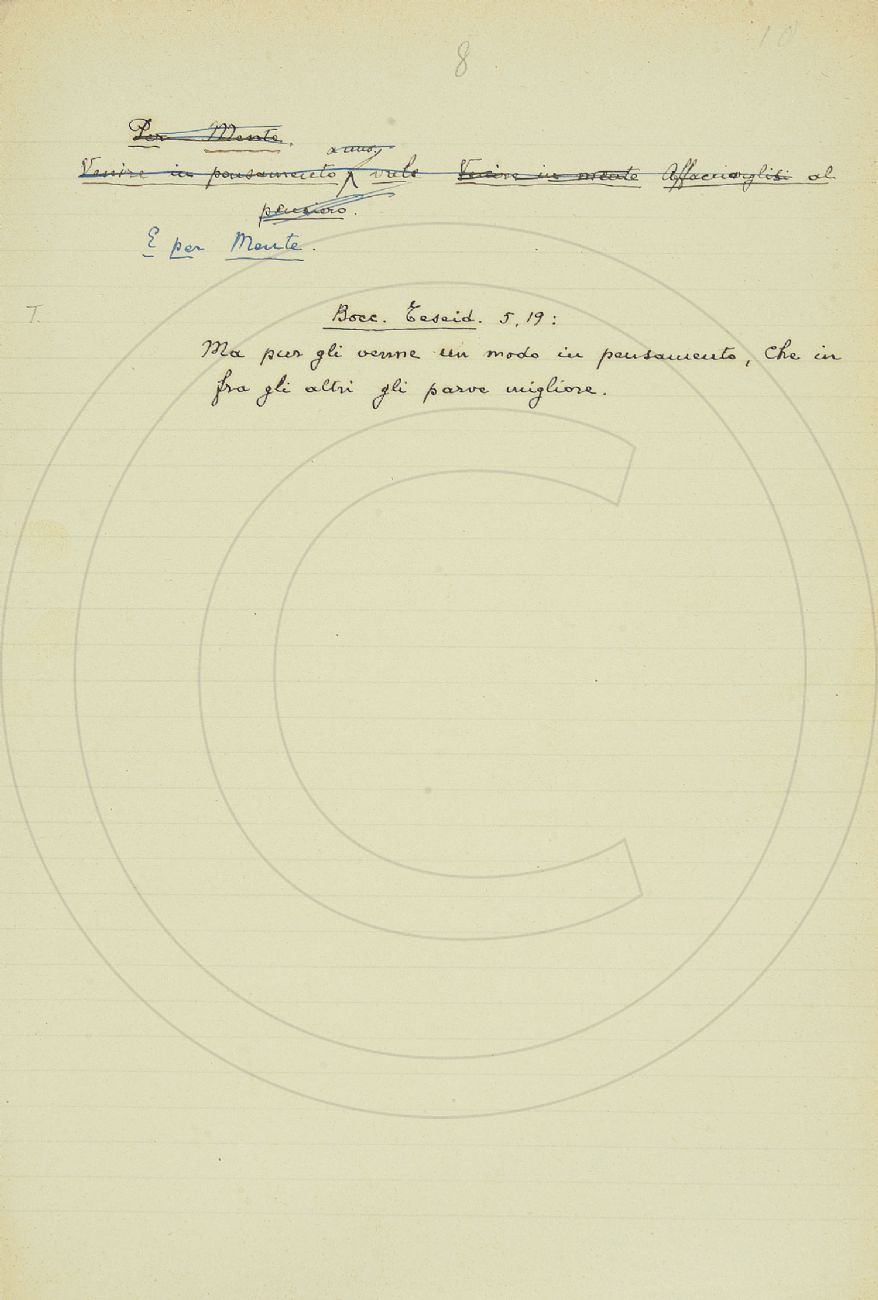 8
10
Per Mente.
a uno,
Venire in pensamento vale Venire in mente Affacciarglisi al
pensiero.
E per Mente.
T.
Bocc. Teseid. 5, 19:
Ma pur gli venne un modo in pensamento, Che in
fra gli altri gli parve migliore.